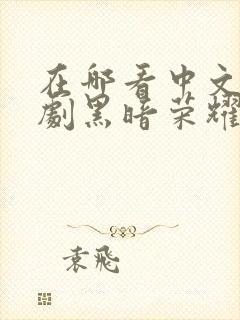 在哪看中文
劇黑暗荣耀
袁飛